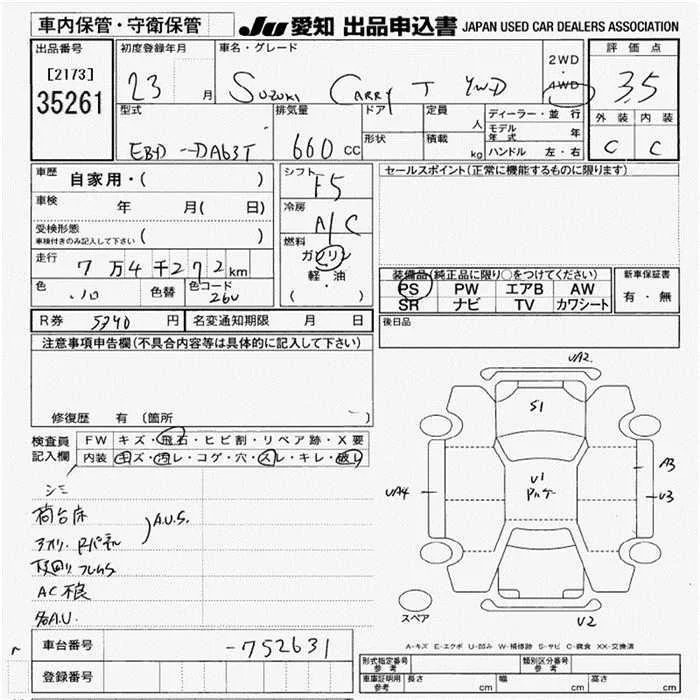 車内保管・守衛保管 JU 愛知 出品申込書 JAPAN USED CAR DEALERS ASSOCIATION
出品番号 初度登録年月 車名・グレード 評価点
[2173] 23 月 SUZUKI CARRY T 4WD 2WD・4WD 3.5
35261 外装 内装
型式 排気量 ドア 定員 人 ディーラー・並行
C C
形状 積載 kg モデル年式 年
EBD-DA63T 660 cc ハンドル 左・右
車歴 自家用・( ) シフト F5 セールスポイント(正常に機能するものに限ります)
車検 年 月( 日) 冷房 A/C
受検形態 ( )
車検付きのみ記入して下さい
燃料 ガソリン
走行 7万4千272km 軽・油
( ・ )
装備品(純正品に限り○をつけてください) 新車保証書
色 色替 色コード 26U PS PW エアB AW 有・無
SR ナビ TV カワシート
R券 5340 円 名変通知期限 月 日 後日品
注意事項申告欄(不具合内容等は具体的に記入して下さい)
修復歴 有 (箇所 )
検査員記入欄 FW キズ・飛石・ヒビ割・リペア跡・X要
内装 キズ・汚レ・コゲ・穴・スレ・キレ・破レ
シミ
荷台床
アオリ. Rパネル A.U.S.
AC不良
各A.U.
UA2
S1
U1
UA4
A3
U3
U2
スペア
A-キズ E-エクボ U-凹み W-補修跡 S-サビ C-腐食 XX-交換済
車台番号 -752631
登録番号
形式指定番号 参考 類別区分番号 参考
車庫証明用 参考 長さ cm 幅 cm 高さ cm